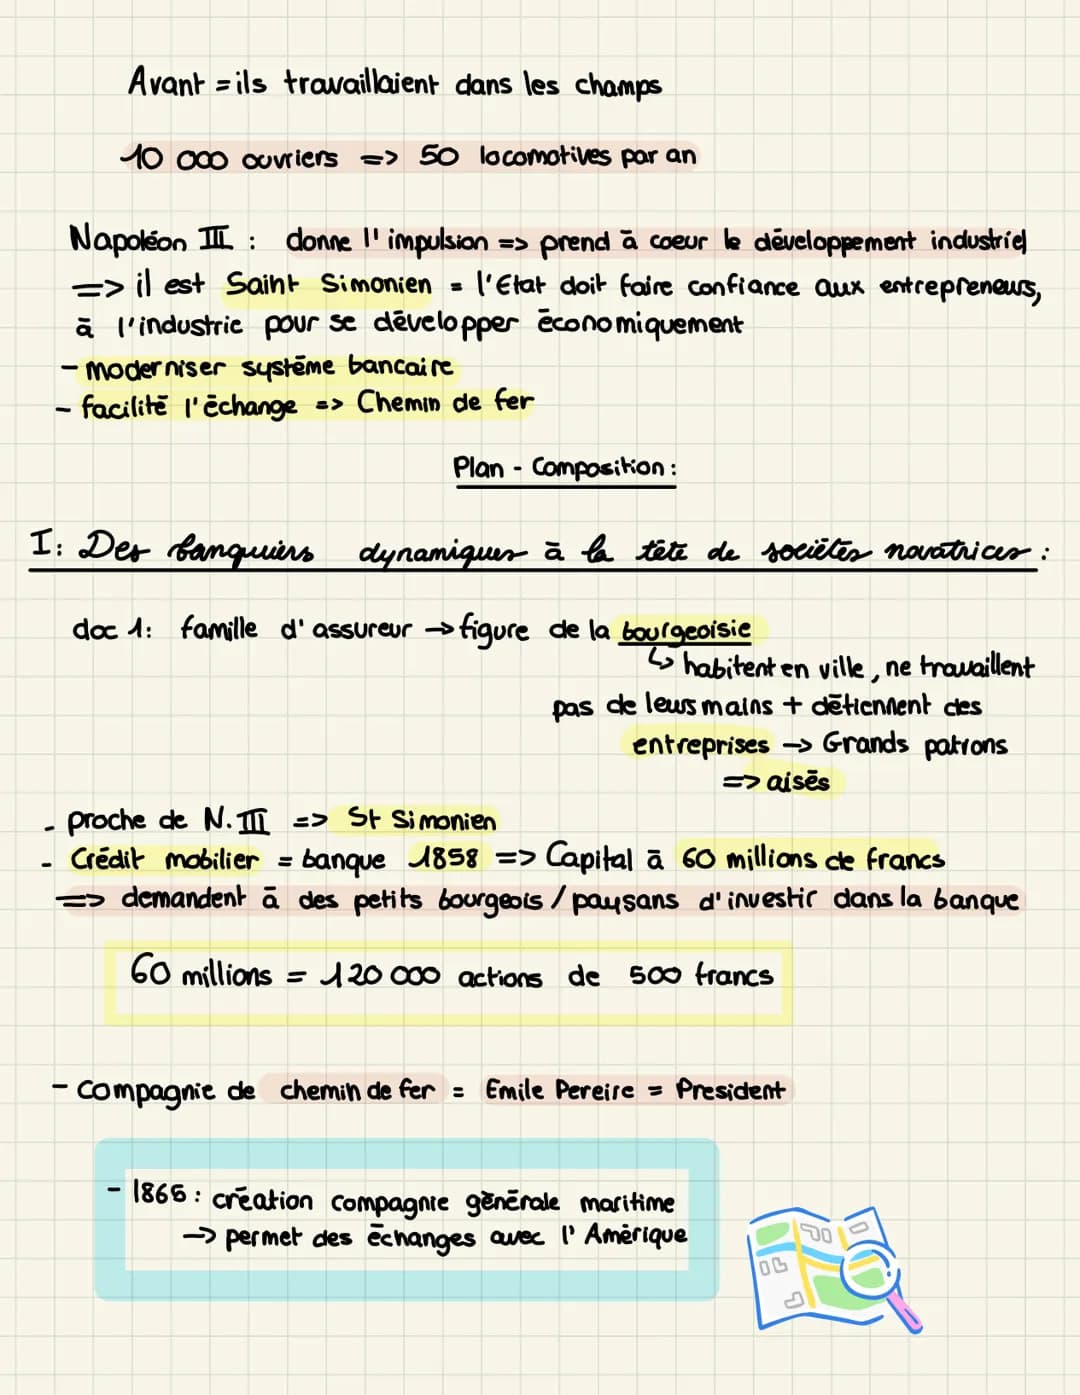 Avant = ils travaillaient dans les champs
10 000 ouvriers => 50 locomotives par an
Napoléon III : donne l'impulsion => prend à coeur le développement industriel
=> il est Saint Simonien = l'Etat doit faire confiance aux entrepreneurs,
à l'industrie pour se développer économiquement
- moderniser système bancaire
- facilité l'échange => Chemin de fer
Plan - Composition :
I: Des banquiers dynamiques à la tête de sociétés novatrices :
doc 1: famille d'assureur → figure de la bourgeoisie
↳ habitent en ville, ne travaillent
pas de leurs mains + détiennent des
entreprises → Grands patrons
=> aisés
- proche de N.III => St Simonien
- Crédit mobilier = banque 1858 => Capital à 60 millions de francs
=> demandent à des petits bourgeois / paysans d'investir dans la banque
60 millions = 120 000 actions de 500 francs
- compagnie de chemin de fer = Emile Pereire = President
- 1866 : création compagnie générale maritime
→ permet des échanges avec l'Amérique